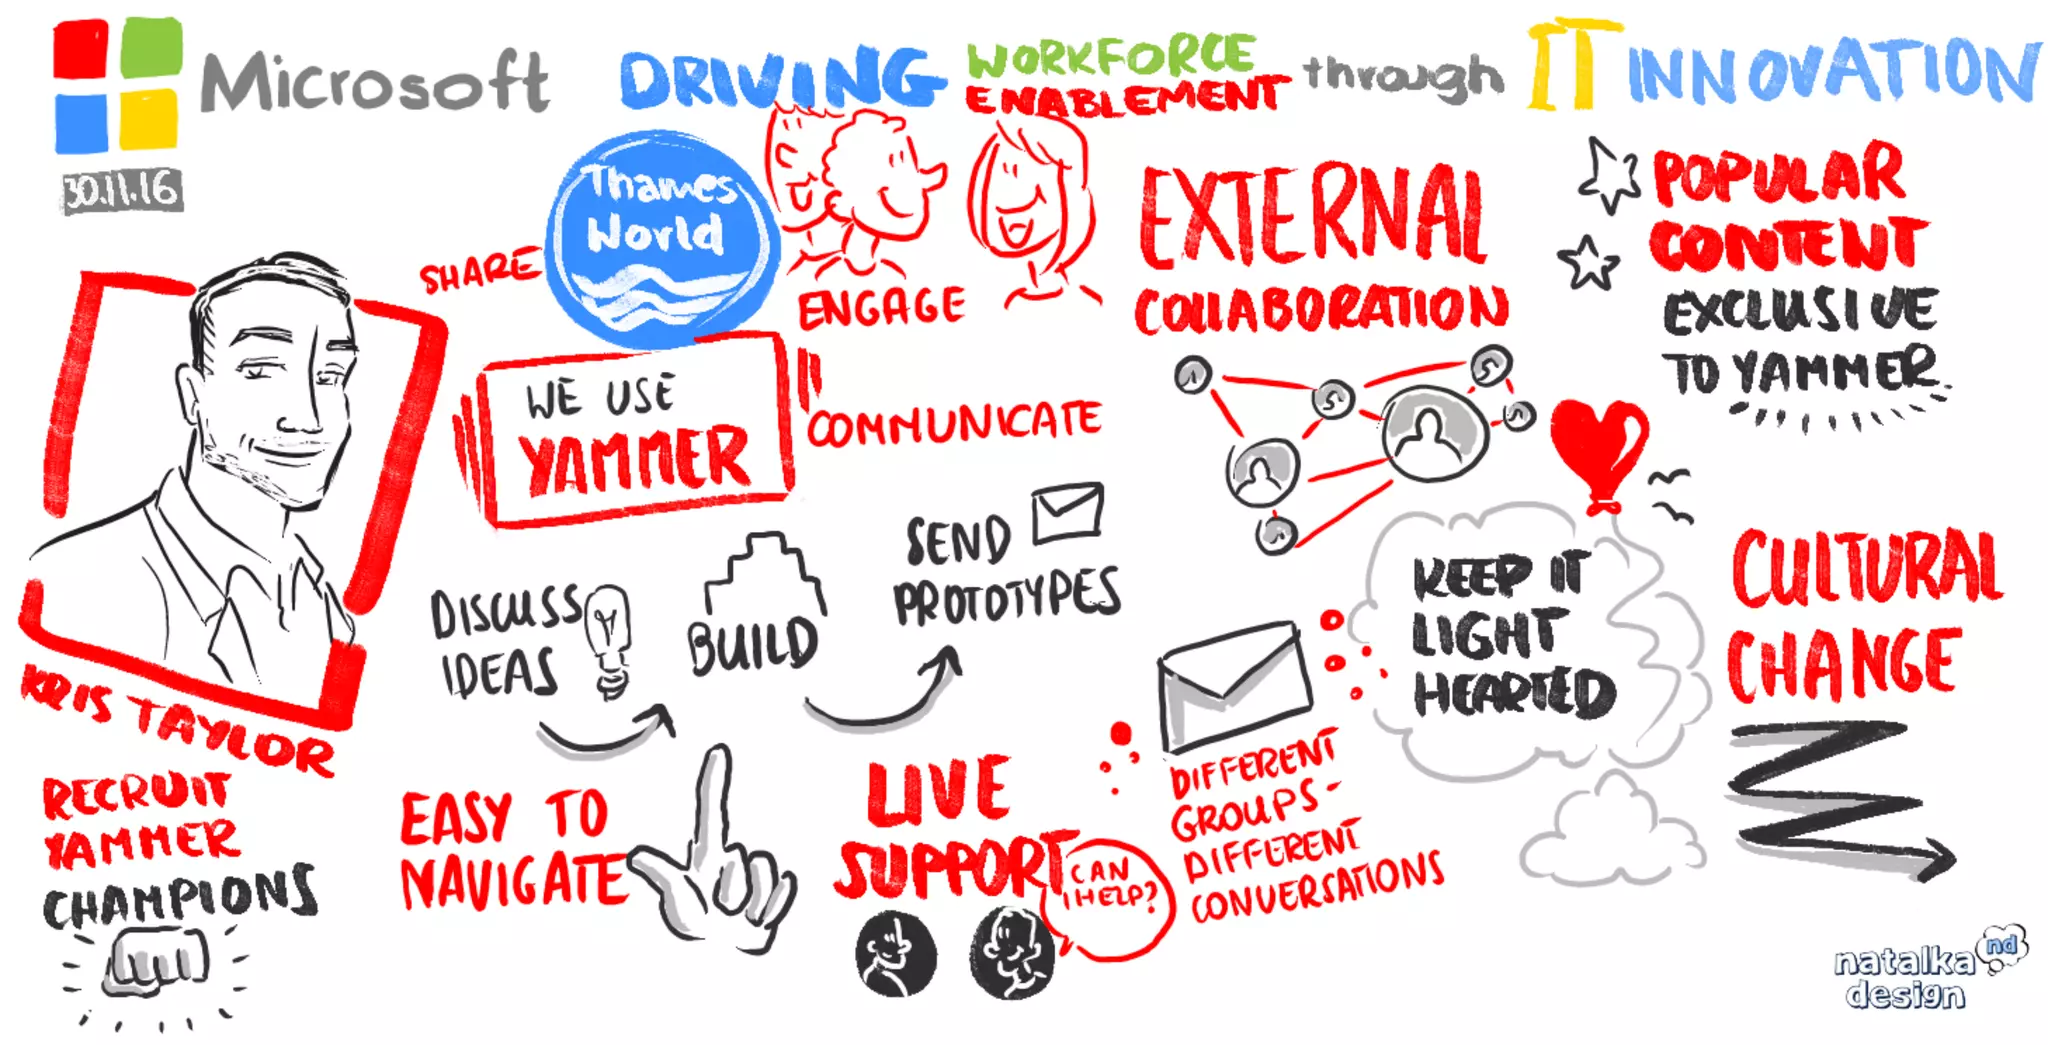 Microsoft
DRIVING WORKFORCE ENABLEMENT through IT INNOVATION
30.11.16
KRIS TAYLOR
RECRUIT
YAMMER
CHAMPIONS
SHARE
Thames
World
ENGAGE
WE USE
YAMMER
COMMUNICATE
DISCUSS
IDEAS
BUILD
SEND
PROTOTYPES
EASY TO
NAVIGATE
LIVE
SUPPORT
CAN
I HELP?
EXTERNAL
COLLABORATION
DIFFERENT
GROUPS -
DIFFERENT
CONVERSATIONS
KEEP IT
LIGHT
HEARTED
POPULAR
CONTENT
EXCLUSIVE
TO YAMMER
CULTURAL
CHANGE
natalka nd
design